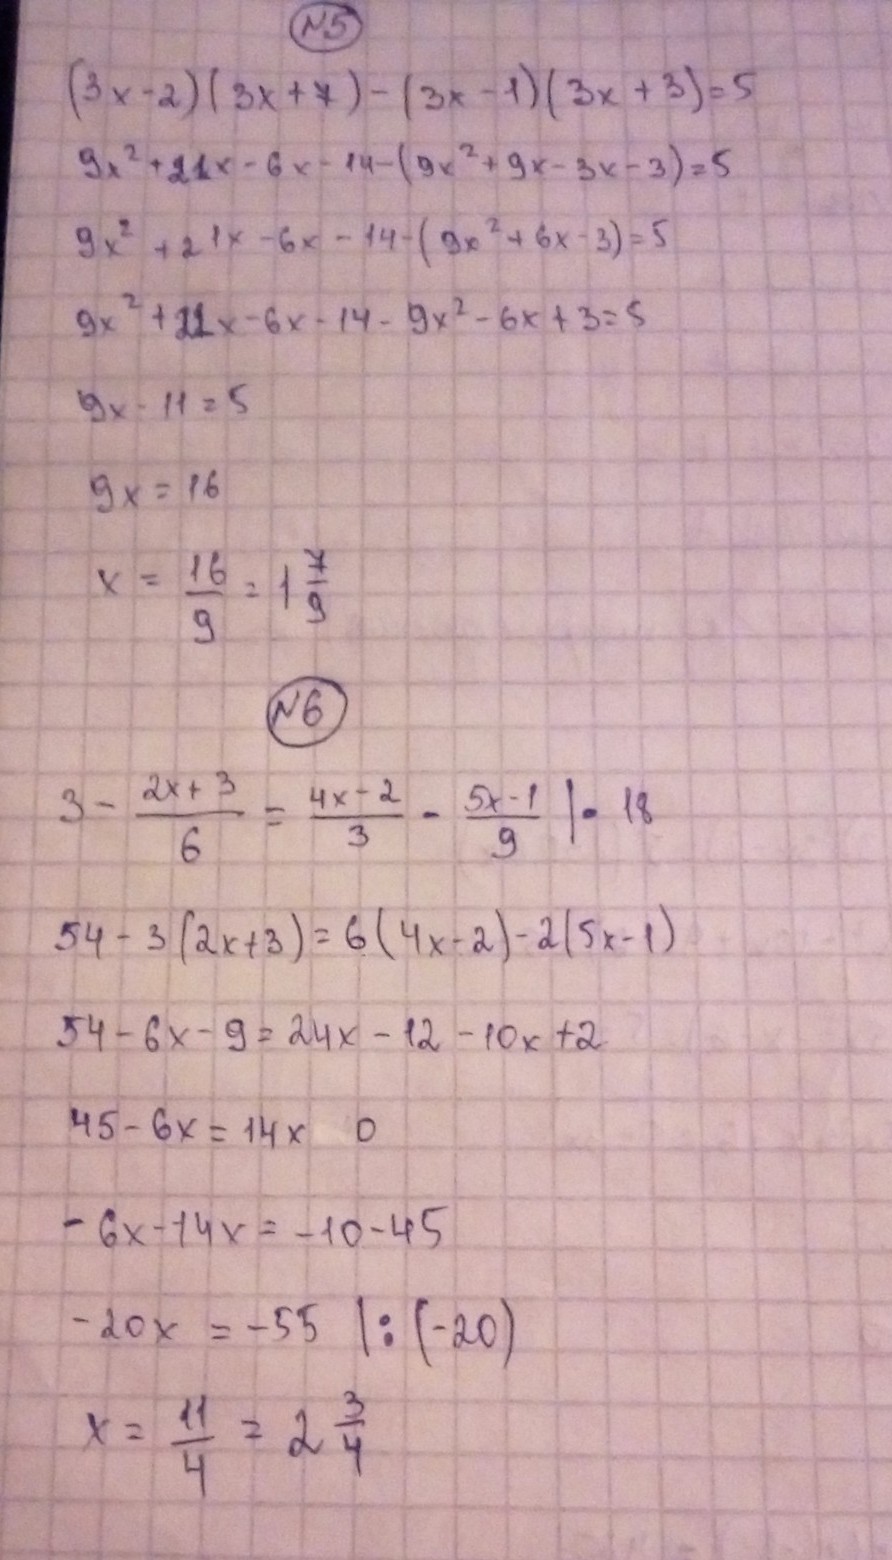 №5
(3x-2)(3x+7)-(3x-1)(3x+3)=5
9x²+21x-6x-14-(9x²+9x-3x-3)=5
9x²+21x-6x-14-(9x²+6x-3)=5
9x²+21x-6x-14-9x²-6x+3=5
9x-11=5
9x=16
x=16/9=1 7/9
№6
3-(2x+3)/6=(4x-2)/3-(5x-1)/9 |·18
54-3(2x+3)=6(4x-2)-2(5x-1)
54-6x-9=24x-12-10x+2
45-6x=14x 0
-6x-14x=-10-45
-20x=-55 |:(-20)
x=11/4=2 3/4